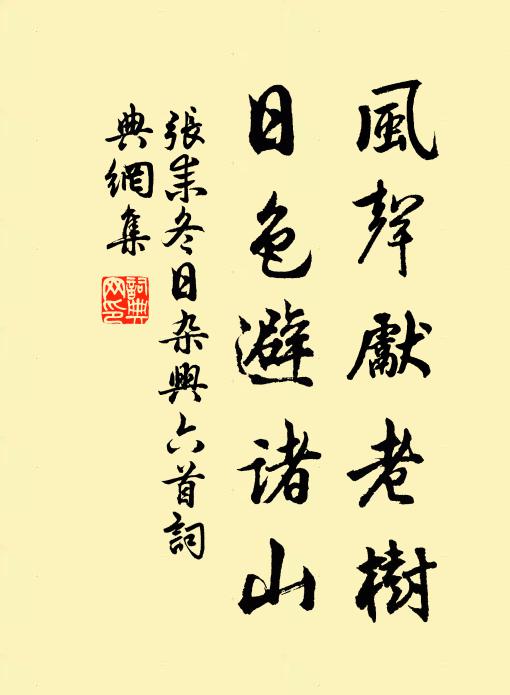 風聲獻老樹
日色避諸山
張耒冬日杂興六首詞
典網集
詞典网印